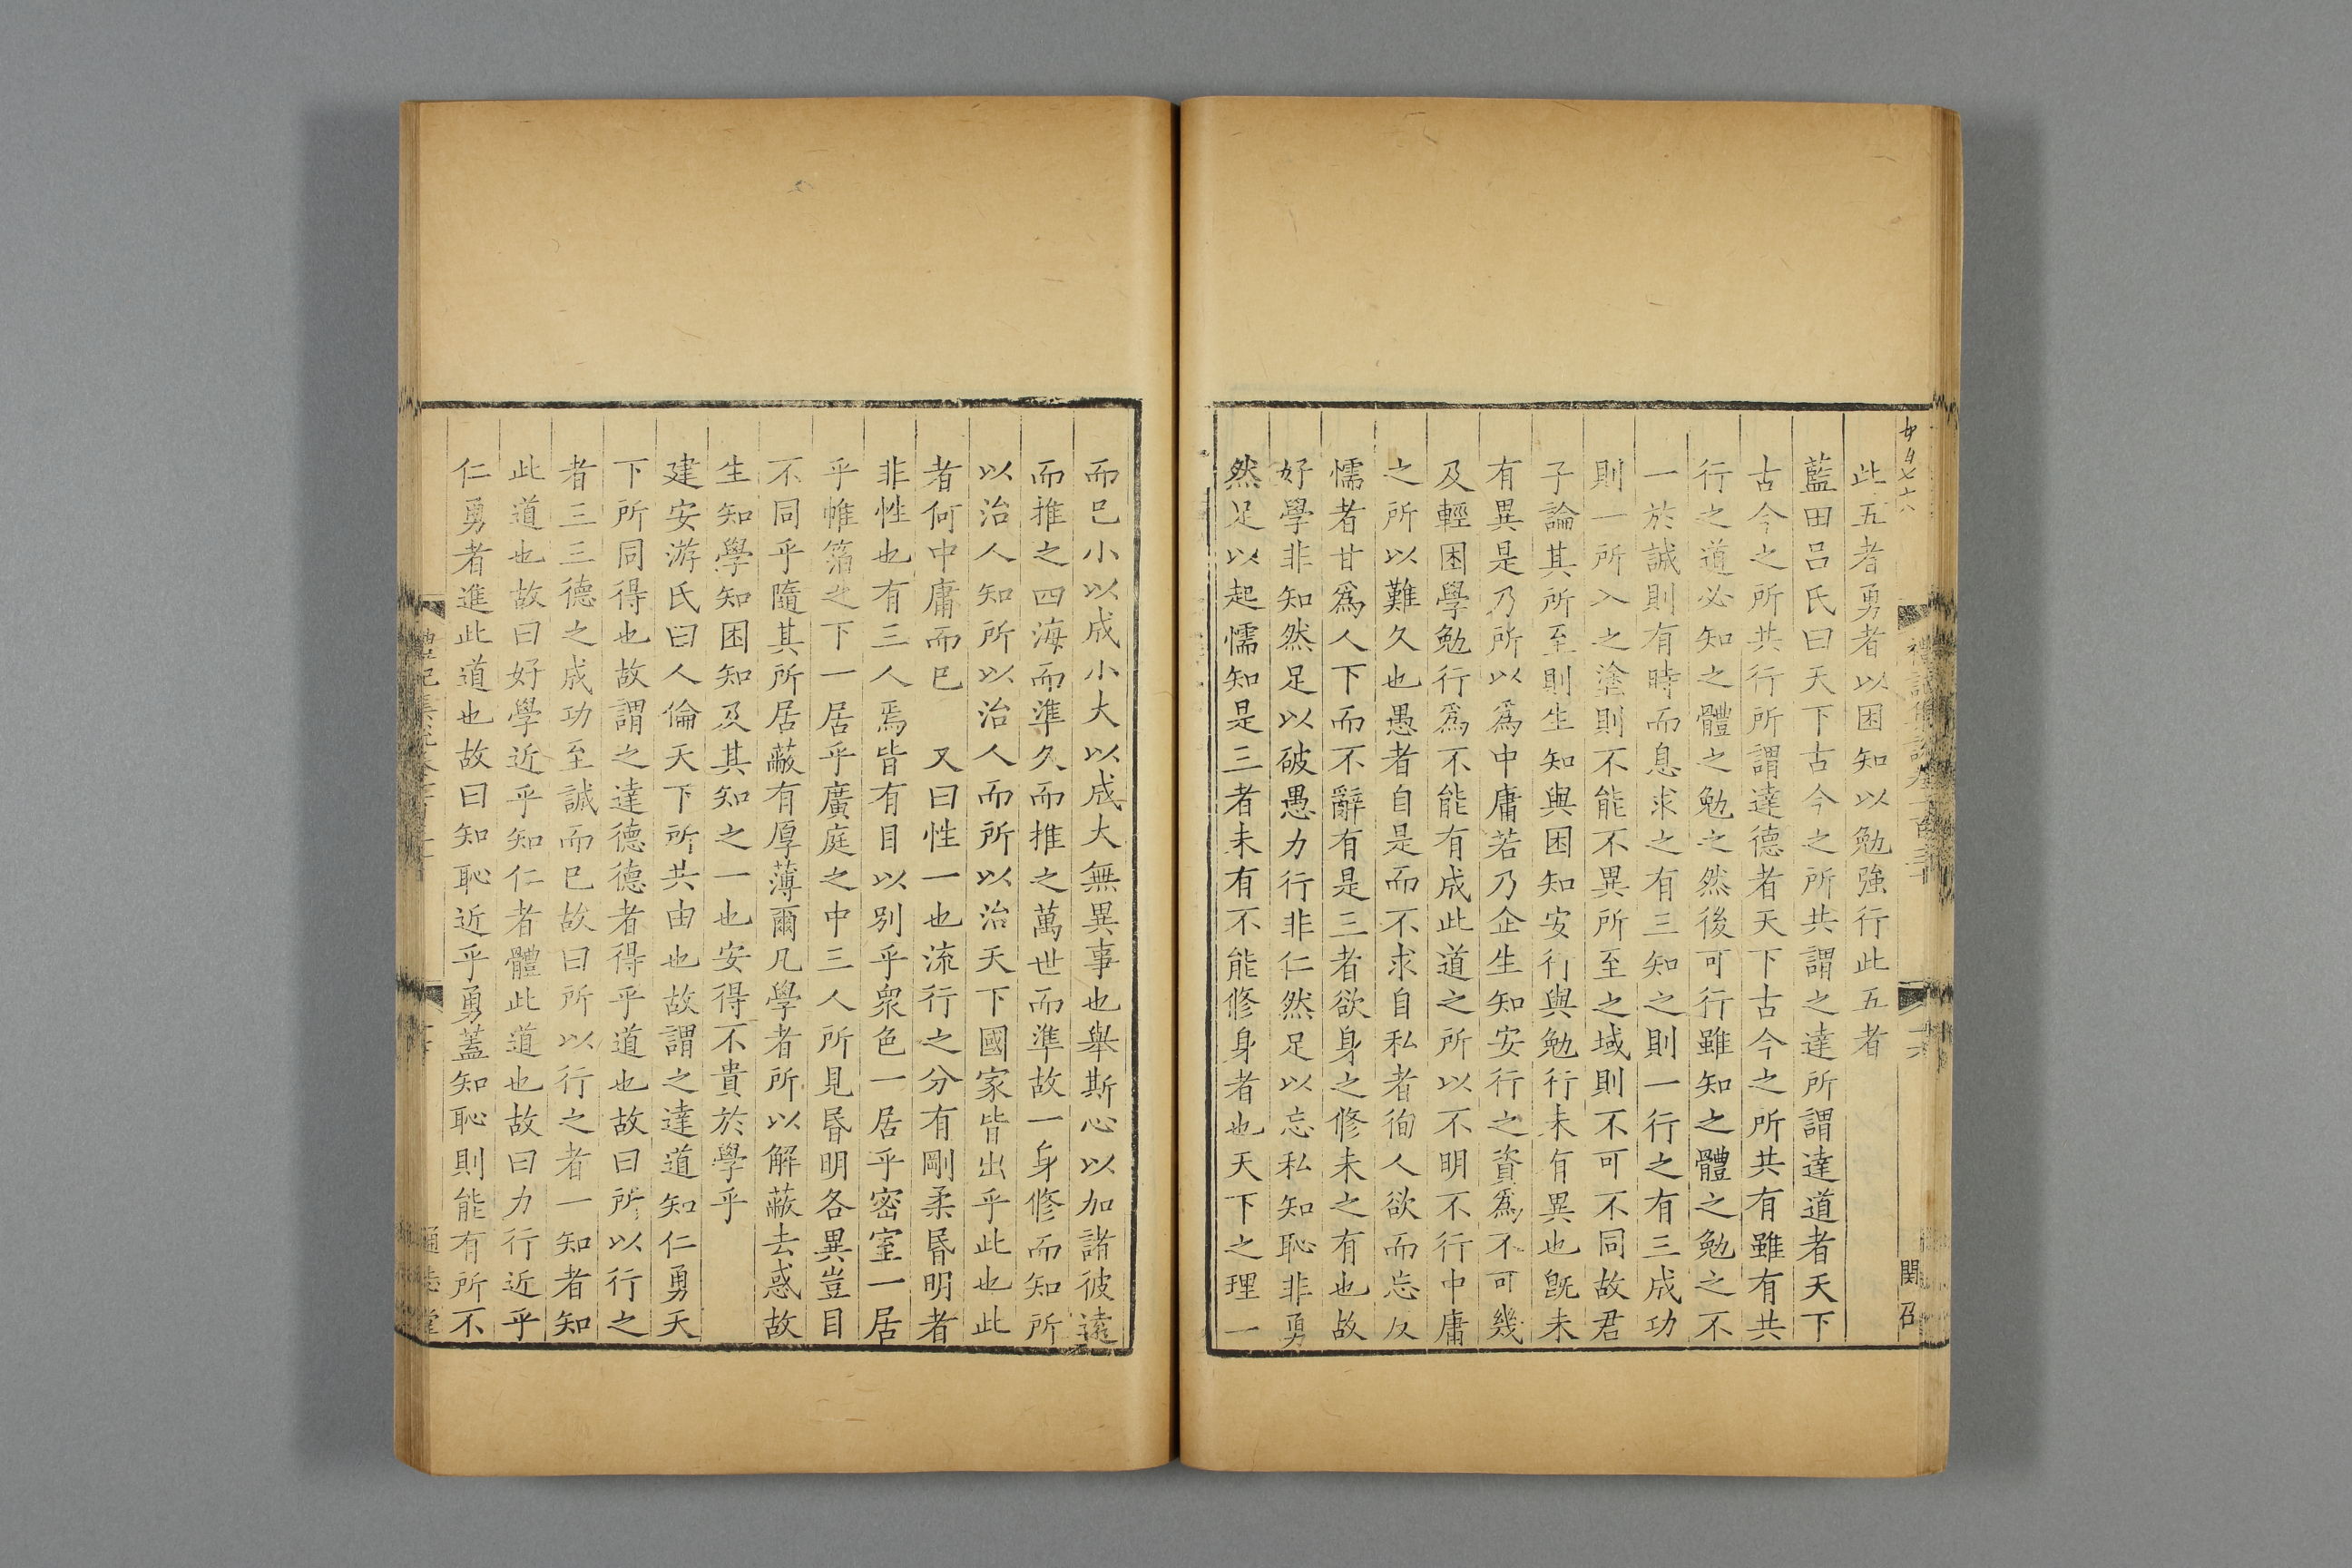 此五者勇者以困知以勉強行此五者
藍田呂氏曰天下古今之所共謂之達所謂達道者天下
古今之所共行所謂達德者天下古今之所共有雖有共
行之道必知之體之勉之然後可行雖知之體之勉之不
一於誠則有時而息求之有三知之則一行之有三成功
則一所入之塗則不能不異所至之域則不可不同故君
子論其所至則生知與困知安行與勉行未有異也旣未
有異是乃所以爲中庸若乃企生知安行之資爲不可幾
及輕困學勉行爲不能有成此道之所以不明不行中庸
之所以難久也愚者自是而不求自私者徇人欲而忘反
懦者甘爲人下而不辭有是三者欲身之修未之有也故
好學非知然足以破愚力行非仁然足以忘私知恥非勇
然足以起懦知是三者未有不能修身者也天下之理一
而已小以成小大以成大無異事也舉斯心以加諸彼遠
而推之四海而準久而推之萬世而準故一身修而知所
以治人知所以治人而所以治天下國家皆出乎此也此
者何中庸而已 又曰性一也流行之分有剛柔昬明者
非性也有三人焉皆有目以別乎衆色一居乎密室一居
乎帷箔之下一居乎廣庭之中三人所見昬明各異豈目
不同乎隨其所居蔽有厚薄爾凡學者所以解蔽去惑故
生知學知困知及其知之一也安得不貴於學乎
建安游氏曰人倫天下所共由也故謂之達道知仁勇天
下所同得也故謂之達德德者得乎道也故曰所以行之
者三三德之成功至誠而已故曰所以行之者一知者知
此道也故曰好學近乎知仁者體此道也故曰力行近乎
仁勇者進此道也故曰知恥近乎勇蓋知恥則能有所不